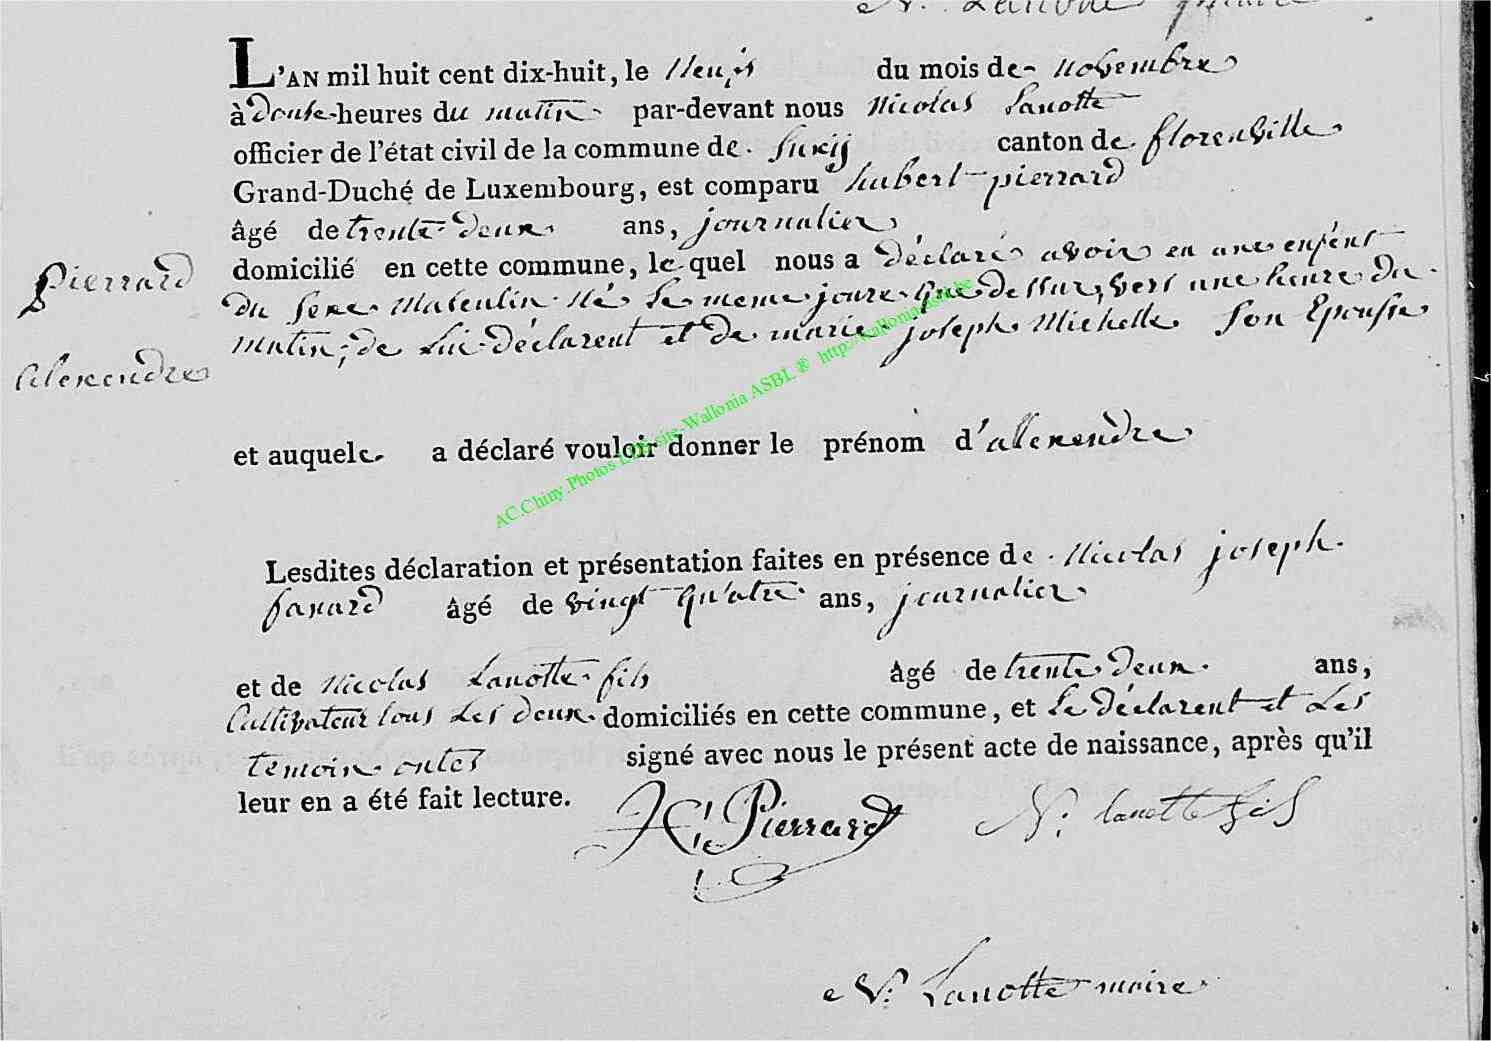 L'AN mil huit cent dix-huit, le neufs du mois de novembre
à douse heures du matin par-devant nous Nicolas Lanotte
officier de l'état civil de la commune de Suxij canton de florenville
Grand-Duché de Luxembourg, est comparu hubert pierrard
âgé de trente deux ans, journalier
domicilié en cette commune, le quel nous a déclaré avoir en une enfent
du sexe masculin né le meme jour que dessus, vers une heure du
matin, de lui déclarent et de marie joseph Michelle son Epousse
Pierrard
alexendre
et auquele a déclaré vouloir donner le prénom d'allexendre
AC.Chiny.Photos LDE site-Wallonia ASBL ® http://wallonia-asbl.be
Lesdites déclaration et présentation faites en présence de Nicolas joseph
âgé de vingt qu'atre ans, journalier
et de Nicolas Lanotte fils âgé de trente deux ans,
Cultivateur tous les deux domiciliés en cette commune, et le déclarent et les
temoin ontes signé avec nous le présent acte de naissance, après qu'il
leur en a été fait lecture.
H Pierrard N. Lanotte fils
N. Lanotte maire